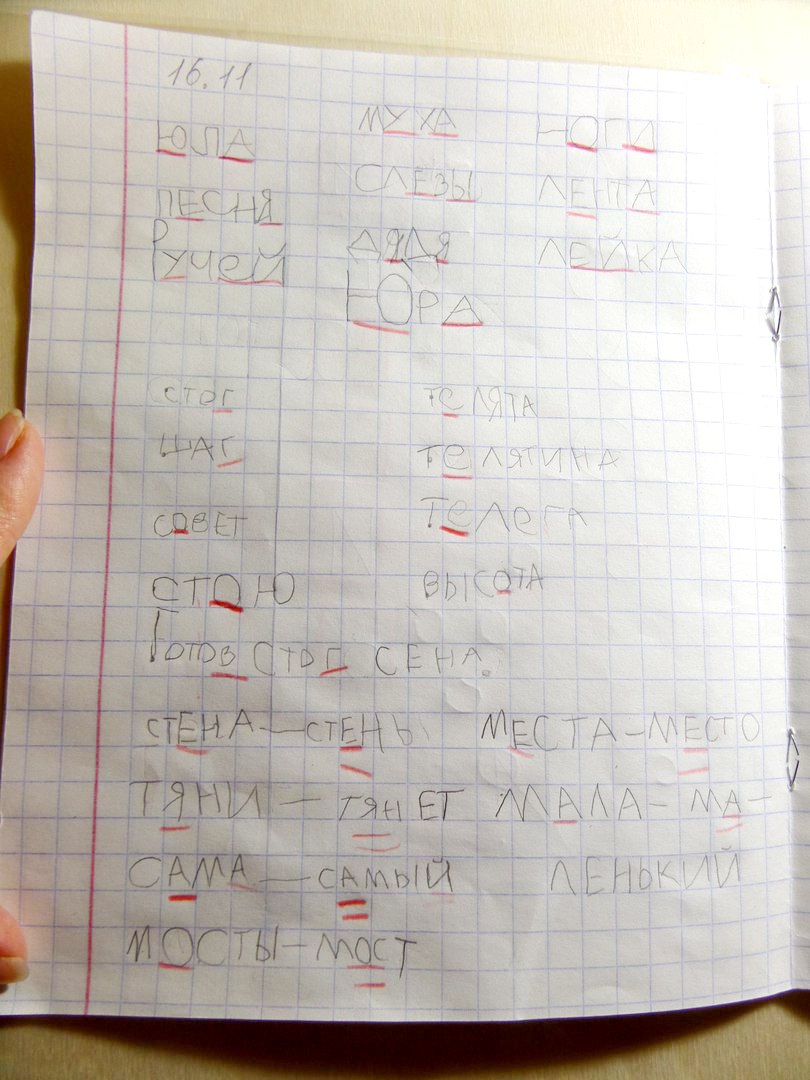 16.11
ЮЛА МУХА НОГА
ПЕСНЯ СЛЕЗЫ ЛЕНТА
РУЧЕЙ ДЯДЯ ЛЕЙКА
ЮРА
СТОГ ТЕЛЯТА
ШАГ ТЕЛЯТИНА
СОВЕТ ТЕЛЕГА
СТОЮ ВЫСОТА
ГОТОВ СТОГ СЕНА.
СТЕНА — СТЕНЫ МЕСТА — МЕСТО
ТЯНИ — ТЯНЕТ МАЛА — МА-
САМА — САМЫЙ ЛЕНЬКИЙ
МОСТЫ — МОСТ